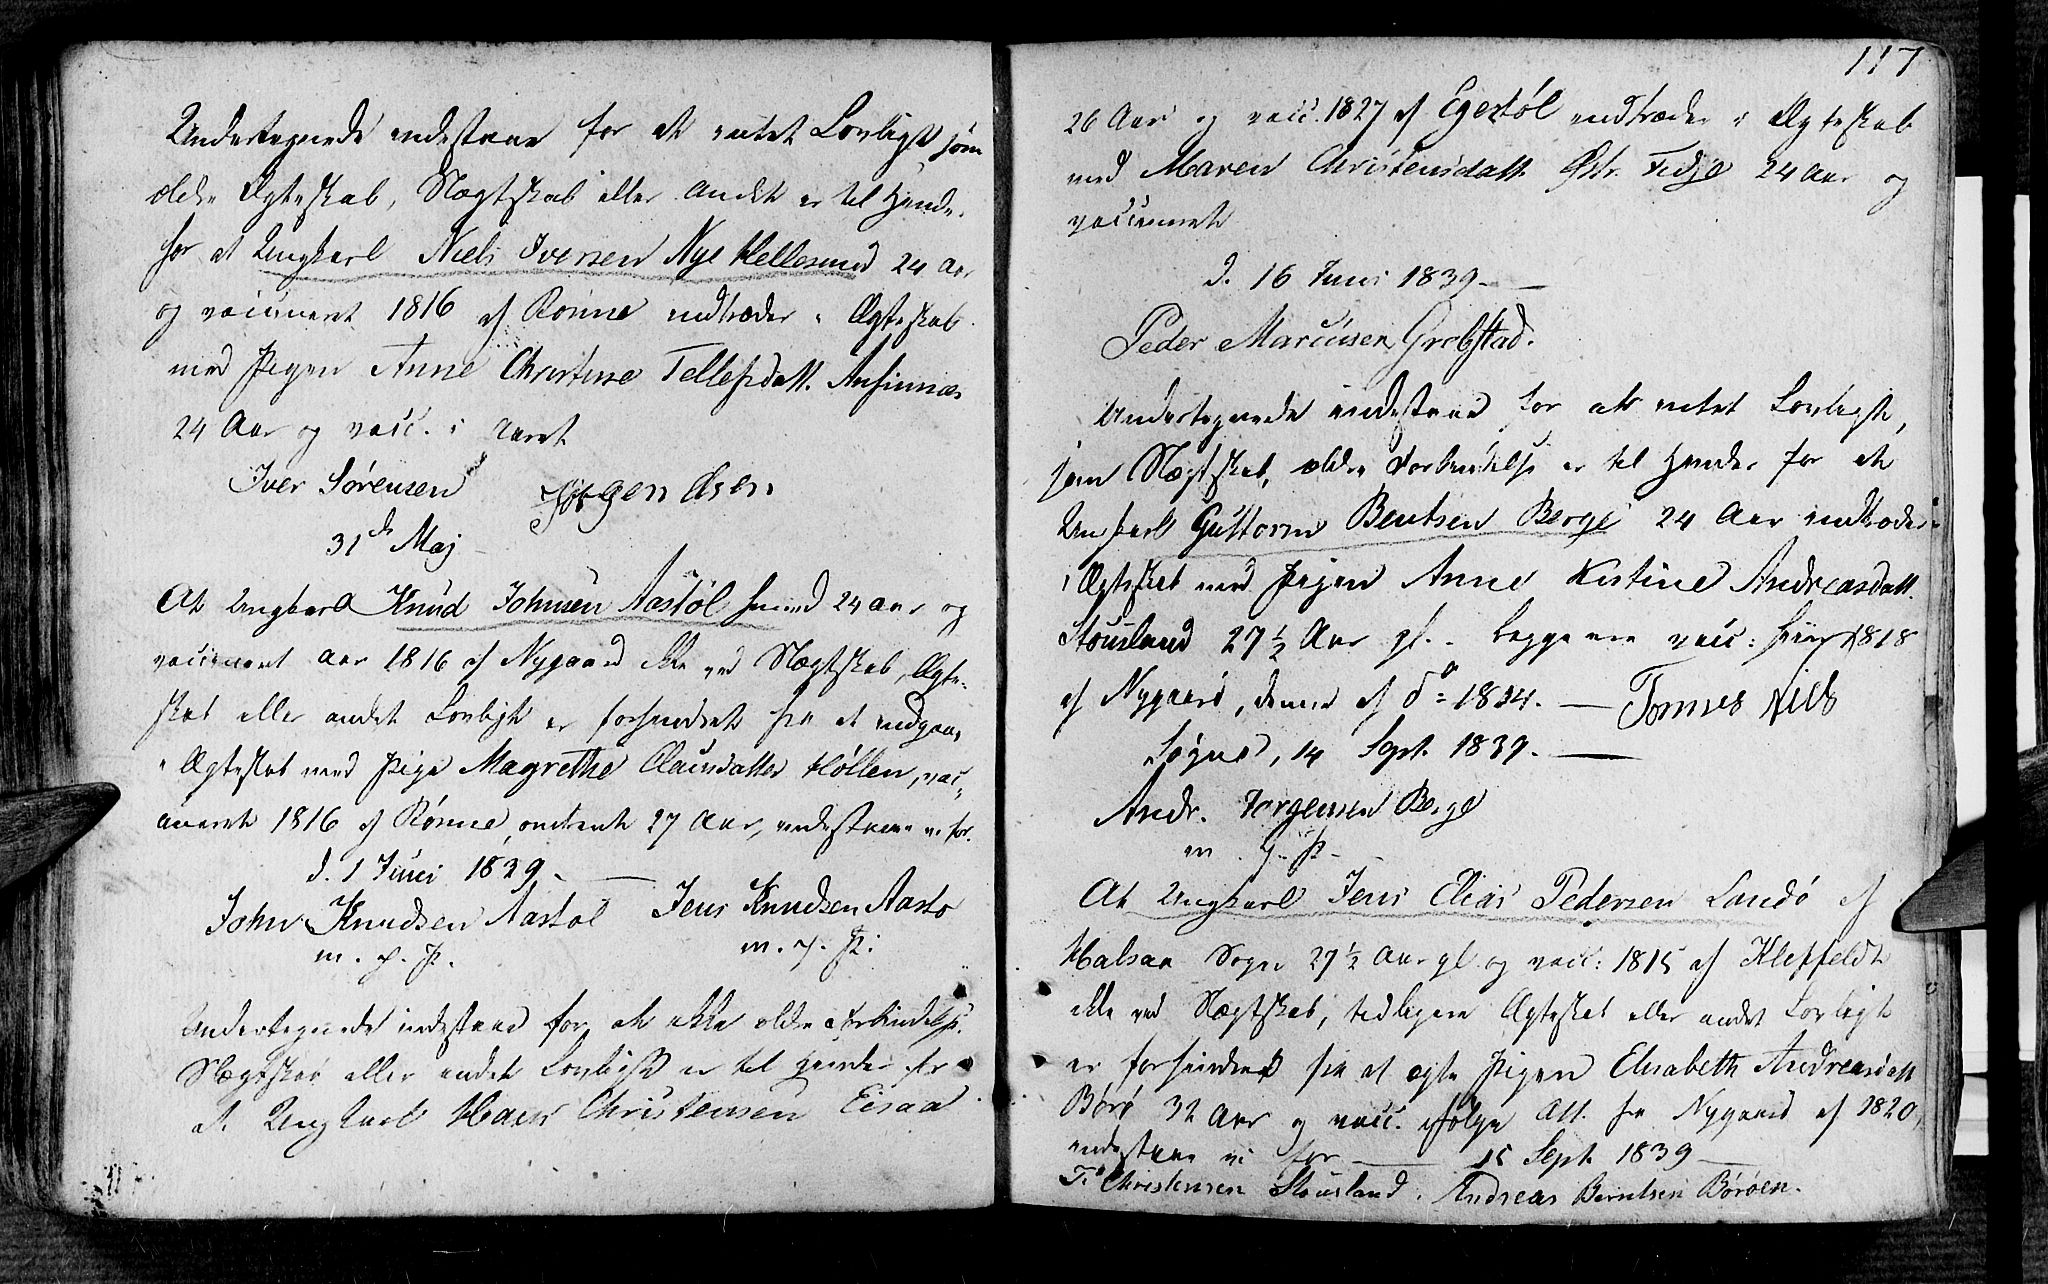 Undertegnede indestaae for at intet Lovligt som
ældre Ægteskab, Slægtskab eller andet er til Hinder
for at Ungkarl Niels Iversen Nye Hellesund 24 Aar
og vaccineret 1816 af Rønne indtræder i Ægteskab
med Pigen Anne Christine Tellefsdatt. Ansinnæs
24 Aar og vacc. i Aaret
Iver Sørensen Jørgen Osen
31 de Maj
At Ungkarl Knud Johnsen Aastøl 24 Aar og
vaccineret Aar 1816 af Nygaard ikke ved Slægtskab, Ægte-
skab eller andet Lovligt er forhindret fra at indgaae
i Ægteskab med Pige Magrethe Clausdatter Høllen, vac-
cineret 1816 af Rønne, omtrent 27 Aar, indestaae vi for.
d. 1 Juni 1839.
John Knudsen Aastøl Jens Knudsen Aastø
m. f. P. m. f. P.
Undertegnede indestaae for, at ikke ældre Forbindelse,
Slægtskab eller andet Lovligt er til Hinder for
at Ungkarl Hans Christensen Eisaa
117
26 Aar og vacc. 1827 af Egestøl indtræder i Ægteskab
med Maren Christensdatt. Østr. Fidje 24 Aar og
vaccineret
d. 16 Juni 1839.
Peder Marcussen Grobstad.
Undertegnede indestaae for at intet Lovligt,
som Slægtskab, ældre Forbindelse er til Hinder for at
Unkarl Guttorm Bentsen Berge 24 Aar indtræder
i Ægteskab med Pigen Anne Kistine Andreasdatt.
Stousland 27 1/2 Aar gl. - begge ere vacc: 1818
af Nygaard, denne af do 1834. Tomes Nils
Søgne, 14 Sept. 1839.
Andr. Jørgensen Berge
m. f. P.
At Ungkarl Jens Elias Pedersen Landø af
Halsaa Sogn 27 1/2 Aar gl og vacc: 1815 af Klepfeldt
ikke ved Slægtskab, tidligere Ægteskab eller andet Lovligt
er forhindret fra at ægte Pigen Elisabeth Andreasdatt
Børø 32 Aar og vacc. ifølge Att. fra Nygaard af 1820,
indestaae vi for 15 Sept. 1839
Christensen Stousland. Andreas Berntsen Børøen.